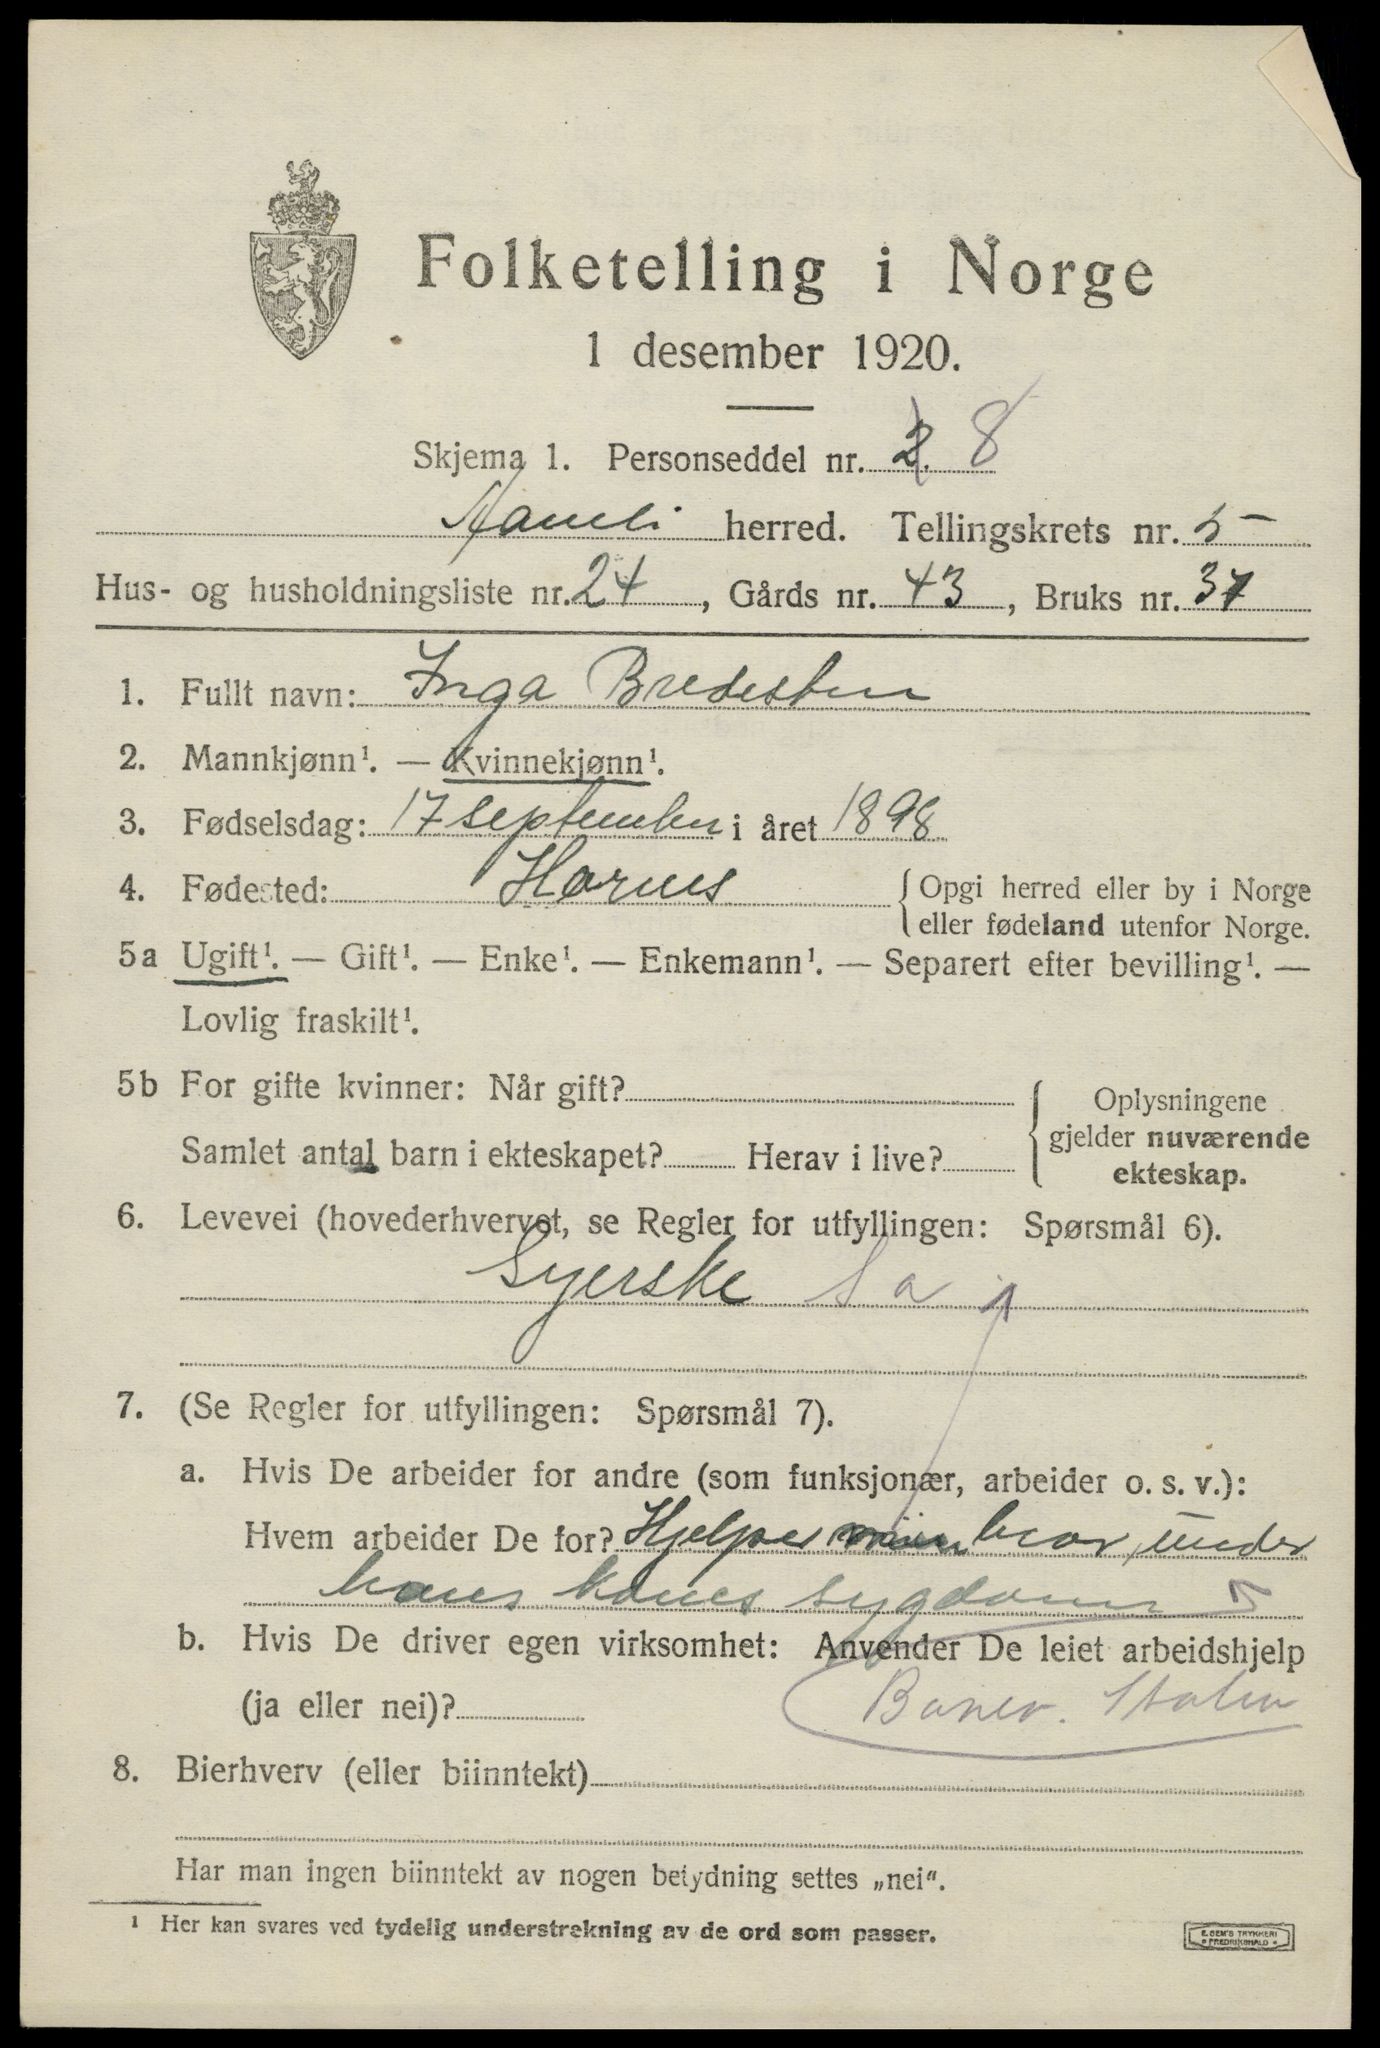 Folketelling i Norge
1 desember 1920.
Skjema 1. Personseddel nr. 2. 8
Aamli herred. Tellingskrets nr. 5
Hus- og husholdningsliste nr. 24, Gårds nr. 43, Bruks nr. 37
1. Fullt navn: Inga Bredesten
2. Mannkjønn¹. — Kvinnekjønn¹.
3. Fødselsdag: 17 september i året 1898
4. Fødested: Hornes {Opgi herred eller by i Norge
eller fødeland utenfor Norge.
5a Ugift¹. — Gift¹. — Enke¹. — Enkemann¹. — Separert efter bevilling¹. —
Lovlig fraskilt¹.
5b For gifte kvinner: Når gift? { Oplysningene
Samlet antal barn i ekteskapet? Herav i live? gjelder nuværende
ekteskap.
6. Levevei (hovederhvervet, se Regler for utfyllingen: Spørsmål 6).
Syerske Sa
7. (Se Regler for utfyllingen: Spørsmål 7).
a. Hvis De arbeider for andre (som funksjonær, arbeider o. s. v.):
Hvem arbeider De for? Hjelper min bror, under
hans kones sygdom
b. Hvis De driver egen virksomhet: Anvender De leiet arbeidshjelp
(ja eller nei)?
8. Bierhverv (eller biinntekt)
Har man ingen biinntekt av nogen betydning settes „nei".
¹ Her kan svares ved tydelig understrekning av de ord som passer.
E. SEM'S TRYKKERI
FREDRIKSHALD